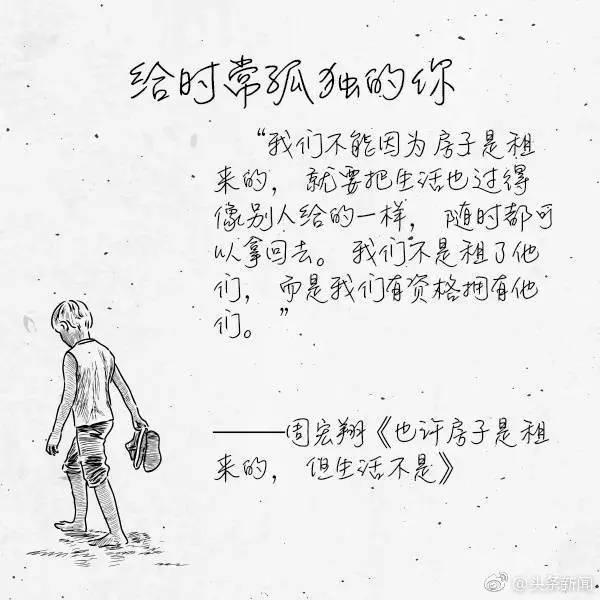 给时常孤独的你
“我们不能因为房子是租
来的，就要把生活也过得
像别人给的一样，随时都可
以拿回去。我们不是租了他
们，而是我们有资格拥有他
们。”
——周宏翔《也许房子是租
来的，但生活不是》
@头条新闻